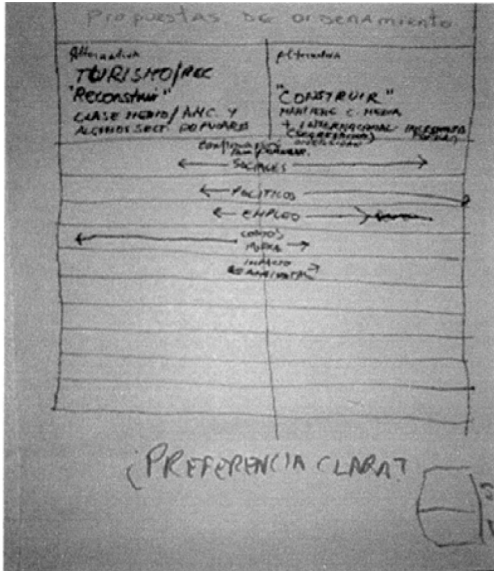 PROPUESTAS DE ORDENAMIENTO
Alternativa
TURISMO/REC
"Reconstruir"
CLASE MEDIO/ANC. Y
ALGUNOS SECT. POPULARES
Alternativa
"CONSTRUIR"
MANTIENE C. MEDIA
+ INTERNACIONAL INCREMENTO
DIVERSIDAD
SOCIALES
POLITICOS
EMPLEO
COSTOS
IMPACTO
AMBIENTAL
¿PREFERENCIA CLARA?